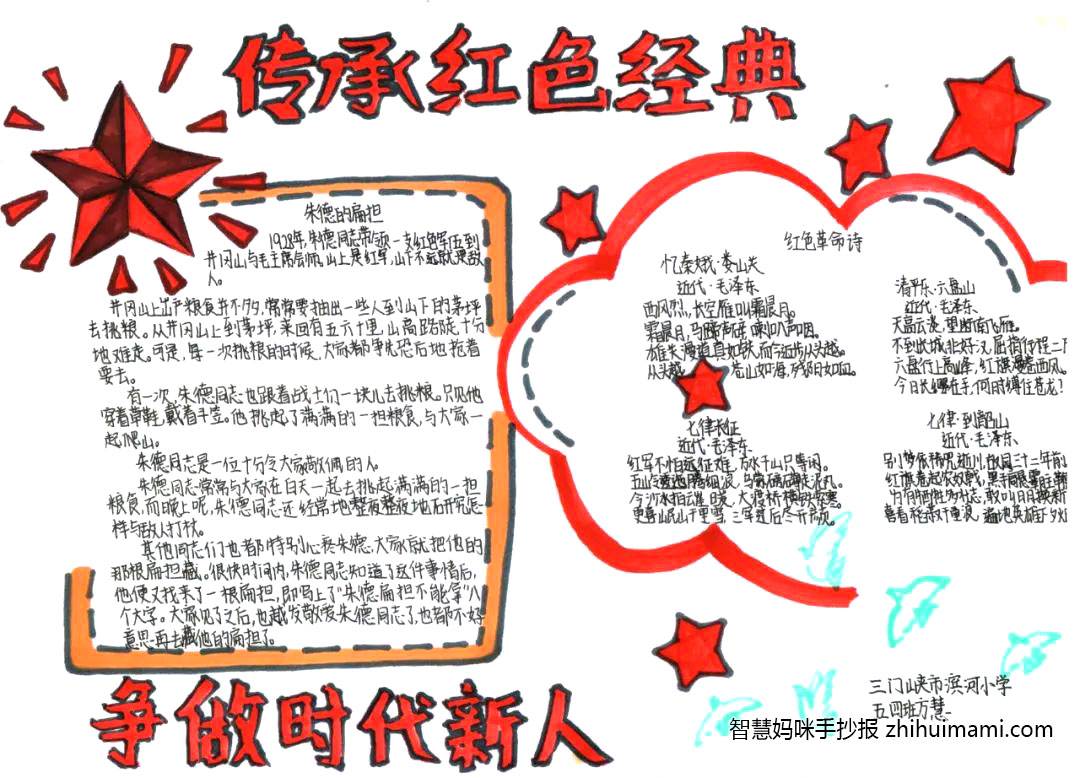 传承红色经典
朱德的扁担
1928年,朱德同志带领一支红色军伍到
井冈山与毛主席会师,山上是红军,山下不远就是敌
人。
井冈山上出产粮食并不多,常常要抽出一些人到山下的茅坪
去挑粮。从井冈山上到茅坪,来回有五六十里,山高路陡十分
地难走。可是,每一次挑粮的时候,大家都争先恐后地抢着
要去。
有一次,朱德同志也跟着战士们一块儿去挑粮。只见他
穿着草鞋,戴着斗笠。他挑起了满满的一担粮食,与大家一
起爬山。
朱德同志是一位十分令大家敬佩的人。
朱德同志常常与大家在白天一起去挑起满满的一担
粮食,而晚上呢,朱德同志还经常地整夜整夜地研究怎
样与敌人打仗。
其他同志们也都特别心疼朱德,大家就把他的
那根扁担藏。很快时间内,朱德同志知道了这件事情后,
他便又找来了一根扁担,即写上了"朱德扁担不能拿"八
个大字。大家见了之后,也越发敬爱朱德同志了,也都不好
意思再去藏他的扁担了。
红色革命诗
忆秦娥·娄山关
近代·毛泽东
西风烈,长空雁叫霜晨月。
霜晨月,马蹄声碎,喇叭声咽。
雄关漫道真如铁,而今迈步从头越。
从头越,苍山如海,残阳如血。
清平乐·六盘山
近代·毛泽东
天高云淡,望断南飞雁。
不到长城非好汉,屈指行程二万
六盘山上高峰,红旗漫卷西风。
今日长缨在手,何时缚住苍龙?
七律长征
近代·毛泽东
红军不怕远征难,万水千山只等闲。
五岭逶迤腾细浪,乌蒙磅礴走泥丸。
金沙水拍云崖暖,大渡桥横铁索寒。
更喜岷山千里雪,三军过后尽开颜。
七律·到韶山
近代·毛泽东
别梦依稀咒逝川,故园三十二年前
红旗卷起农奴戟,黑手高悬霸主鞭
为有牺牲多壮志,敢叫日月换新
喜看稻菽千重浪,遍地英雄下夕烟
争做时代新人
三门峡市滨河小学
五四班方慧
智慧妈咪手抄报 zhihuimami.com